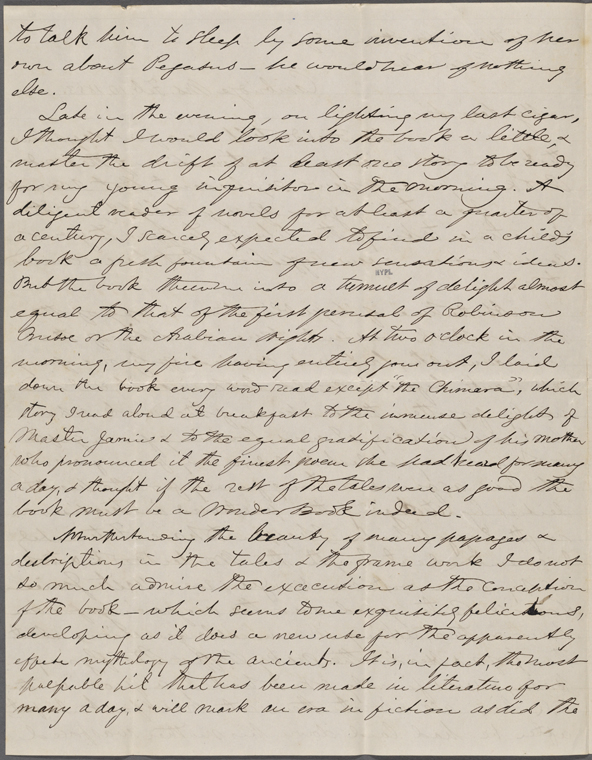 to talk him to sleep by some invention of her
own about Pegasus — he would hear of nothing
else.
Late in the evening, on lighting my last cigar,
I thought I would look into the book a little, &
master the drift of at least one story to be ready
for my young inquisitor in the morning. A
diligent reader of novels for at least a quarter of
a century, I scarcely expected to find in a child's
book a fresh fountain of new sensations & ideas.
NYPL
But the book threw me into a tumult of delight almost
equal to that of the first perusal of Robinson
Crusoe or the Arabian Nights. At two o'clock in the
morning, my fire having entirely gone out, I laid
down the book every word read except "the Chimæra", which
story I read aloud at breakfast to the immense delight of
Master Jamie & to the equal gratification of his mother
who pronounced it the finest poem she had heard for many
a day, & thought if the rest of the tales were as good the
book must be a Wonder Book indeed.
Notwithstanding the beauty of many passages &
descriptions in the tales & the frame work I do not
so much admire the execution as the conception
of the book — which seems to me exquisitely felicitous,
developing as it does a new use for the apparently
effete mythology of the ancients. It is, in fact, the most
palpable hit that has been made in literature for
many a day, & will mark an era in fiction as did the